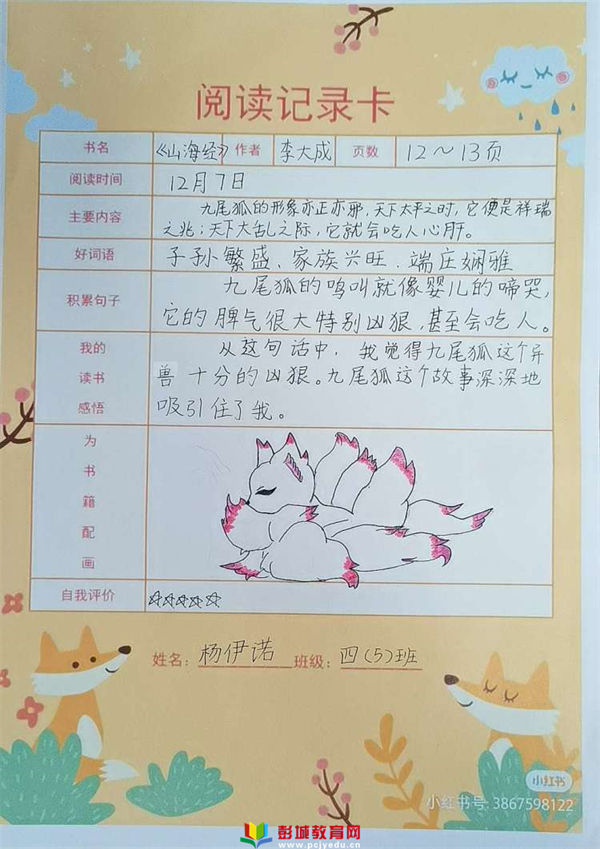 阅读记录卡
书名 《山海经》 作者 李大成 页数 12～13页
阅读时间 12月7日
主要内容 九尾狐的形象亦正亦邪，天下太平之时，它便是祥瑞
之兆；天下大乱之际，它就会吃人心肝。
好词语 子孙繁盛、家族兴旺、端庄娴雅
积累句子 九尾狐的鸣叫就像婴儿的啼哭，
它的脾气很大特别凶狠，甚至会吃人。
我的 从这句话中，我觉得九尾狐这个异
读书 兽十分的凶狠。九尾狐这个故事深深地
感悟 吸引住了我。
为
书
籍
配
画
自我评价 ☆☆☆☆☆
姓名：杨伊诺 班级：四（5）班
小红书
小红书号 3867598122
彭城教育网
www.pcjyedu.cn